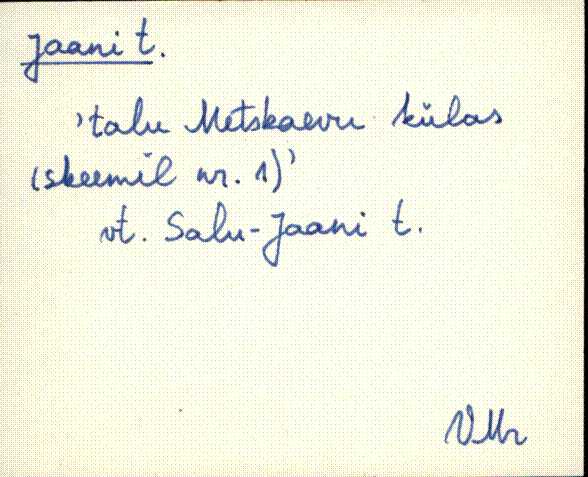 Jaani t.
'talu Metskaevu külas
(skeemil nr. 1)'
vt. Salu-Jaani t.
VMr